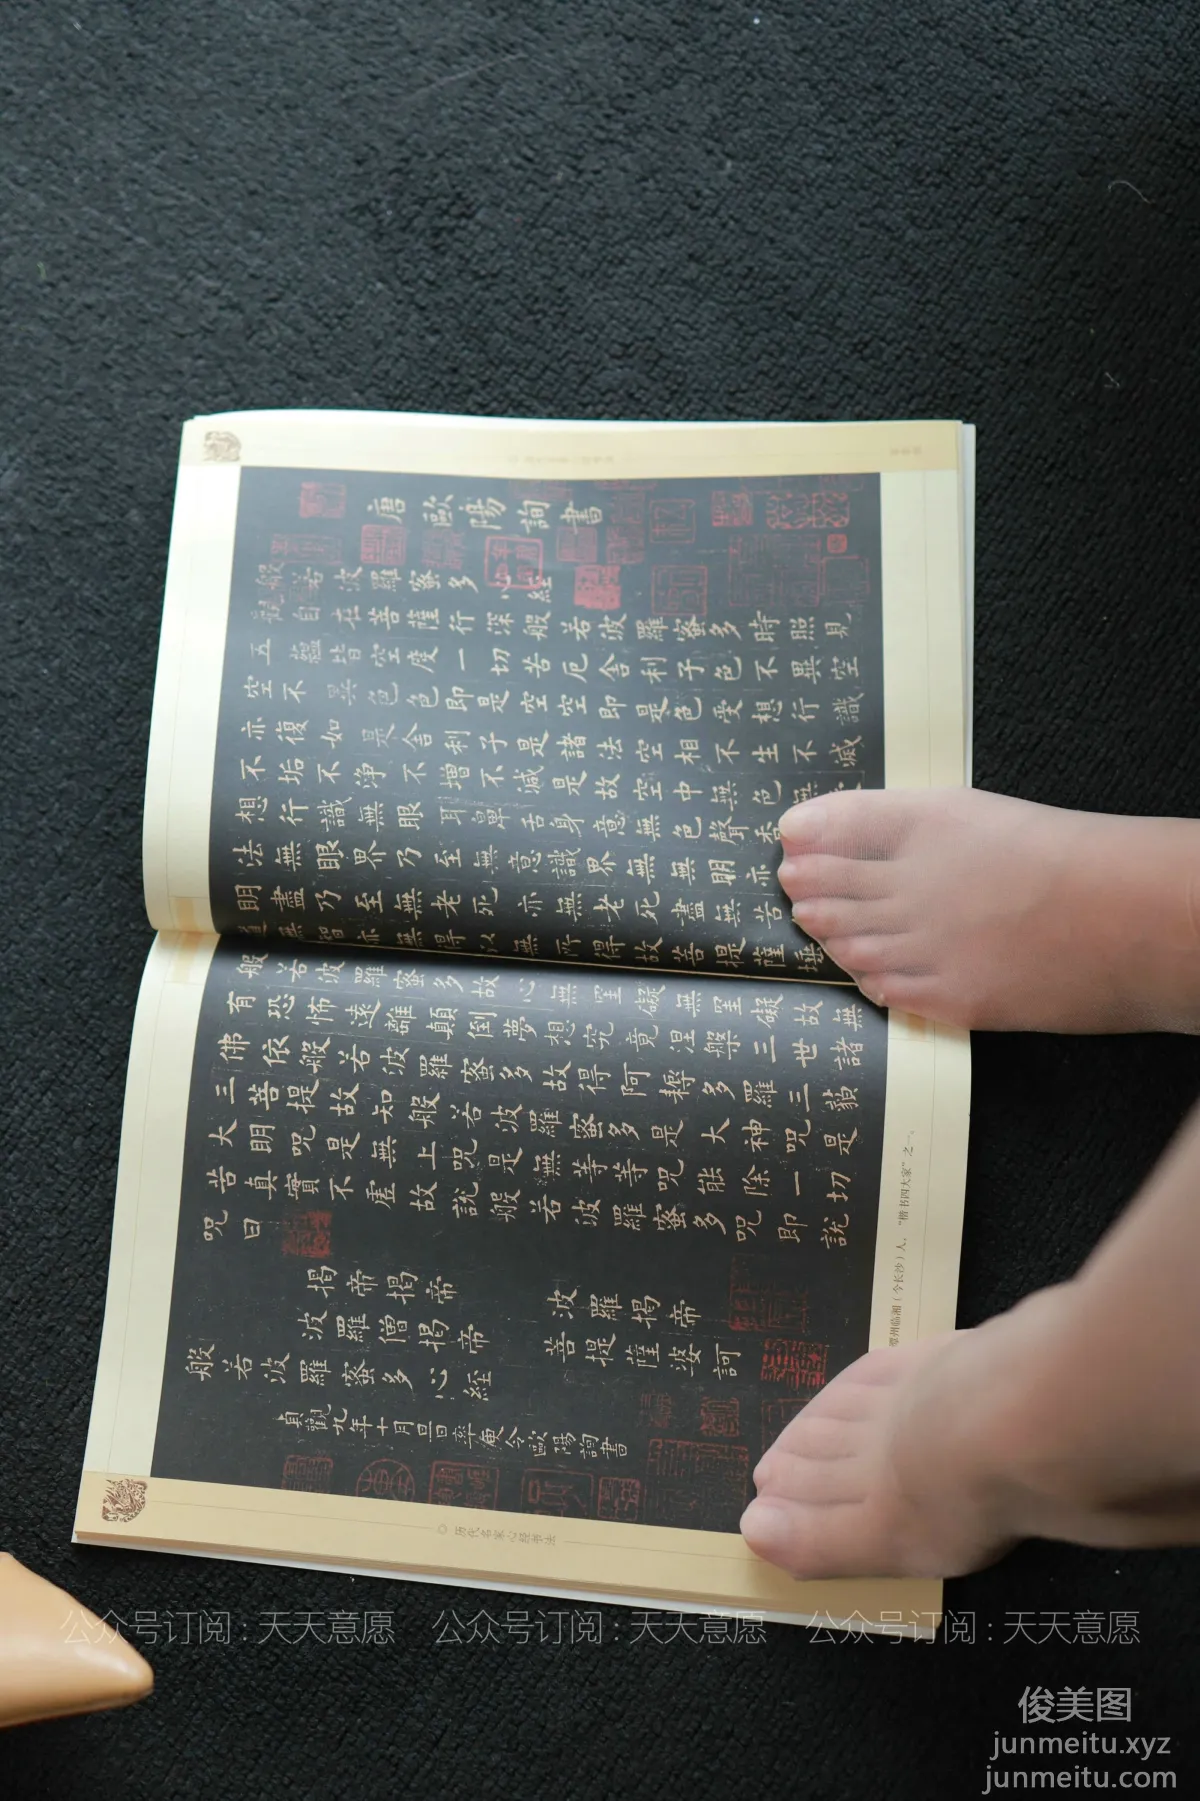 唐歐陽詢書
般若波羅蜜多心經
觀自在菩薩行深般若波羅蜜多時照見
五蘊皆空度一切苦厄舍利子色不異空
空不異色色即是空空即是色受想行識
亦復如是舍利子是諸法空相不生不滅
不垢不淨不增不減是故空中無色無
想行識無眼耳鼻舌身意無色聲香
法無眼界乃至無意識界無無明亦
明盡乃至無老死亦無老死盡無苦
道無智亦無得以無所得故菩提薩埵
般若波羅蜜多故心無罣礙無罣礙故無
有恐怖遠離顛倒夢想究竟涅槃三世諸
佛依般若波羅蜜多故得阿耨多羅三藐
三菩提故知般若波羅蜜多是大神咒是
大明咒是無上咒是無等等咒能除一切
苦真實不虛故說般若波羅蜜多咒即說
咒曰
揭帝揭帝 波羅揭帝
波羅僧揭帝 菩提薩婆訶
般若波羅蜜多心經
貞觀九年十月旦日率更令歐陽詢書
潭州临湘（今长沙）人，“楷书四大家”之一。
历代名家心经书法
公众号订阅：天天意愿 公众号订阅：天天意愿 公众号订阅：天天意愿
俊美图
junmeitu.xyz
junmeitu.com